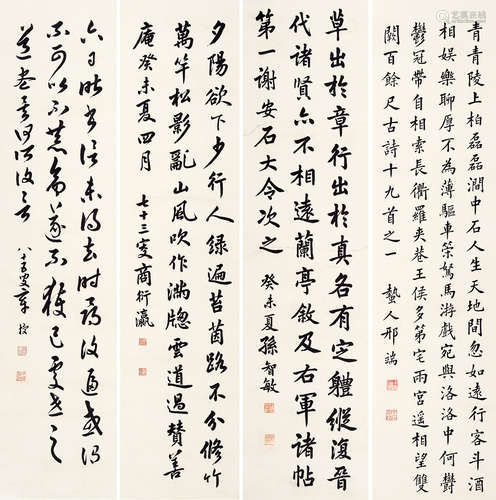 青青陵上柏磊磊澗中石人生天地間忽如遠行客斗酒
相娛樂聊厚不為薄驅車策駑馬游戲宛與洛洛中何鬱
鬱冠帶自相索長衢羅夾巷王侯多第宅兩宮遙相望雙
闕百餘尺古詩十九首之一 蟄人邢端
草出於章行出於真各有定體縱復晉
代諸賢亦不相遠蘭亭敘及右軍諸帖
第一謝安石大令次之 癸未夏孫智敏
夕陽欲下少行人綠遍苔茵路不分修竹
萬竿松影亂山風吹作滿牕雲道過贊善
庵癸未夏四月 七十三叟商衍瀛
六日昨書信未得去時尋復逼或得
不可以不遂不獲已更
章梫